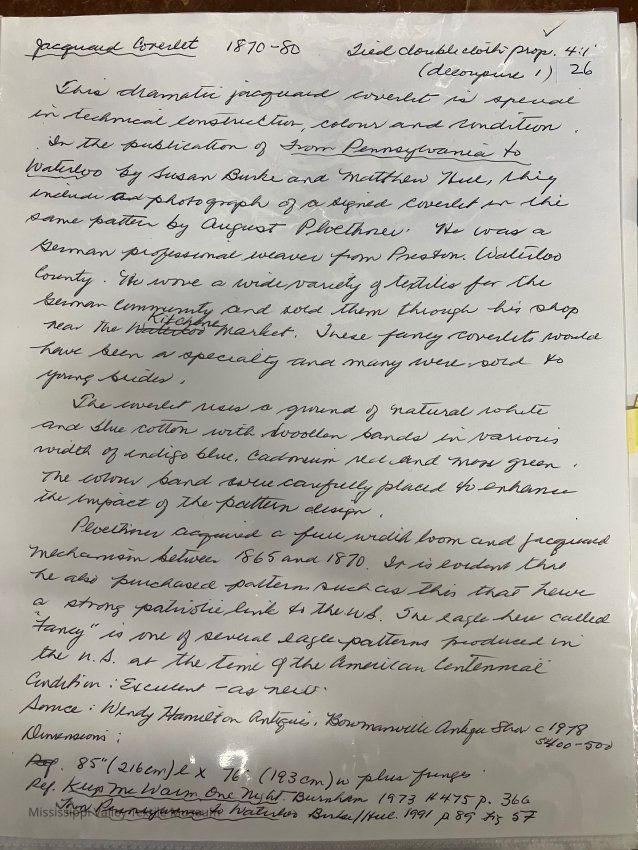 Jacquard Coverlet 1870-80 Tied doublecloth prop. 4:1
(decoupure 1) 26
This dramatic jacquard coverlet is special
in technical construction, colour and condition.
In the publication of From Pennsylvania to
Waterloo by Susan Burke and Matthew Hill, they
include a photograph of a signed coverlet in the
same pattern by August Ploethner. He was a
German professional weaver from Preston, Waterloo
County. He wove a wide variety of textiles for the
German community and sold them through his shop
near the Waterloo Kitchener Market. These fancy coverlets would
have been a specialty and many were sold to
young brides.
The coverlet uses a ground of natural white
and blue cotton with woollen bands in various
width of indigo blue, cadmium red and moss green.
The colour band were carefully placed to enhance
the impact of the pattern design.
Ploethner acquired a full width loom and jacquard
mechanism between 1865 and 1870. It is evident that
he also purchased patterns such as this that have
a strong patriotic link to the U.S. The eagle here called
"Fancy" is one of several eagle patterns produced in
the U.S. at the time of the American Centennial
Condition: Excellent - as new.
Source: Wendy Hamilton Antiques, Bowmanville Antique Show c 1978
$400-500
Dimensions:
Ref. 85" (216 cm) l x 76" (193 cm) w plus fringes
Ref. Keep Me Warm One Night. Burnham 1973 # 475 p. 366
From Pennsylvania to Waterloo Burke/Hill. 1991 p 89 fig 57
Mississippi Valley Textile Museum